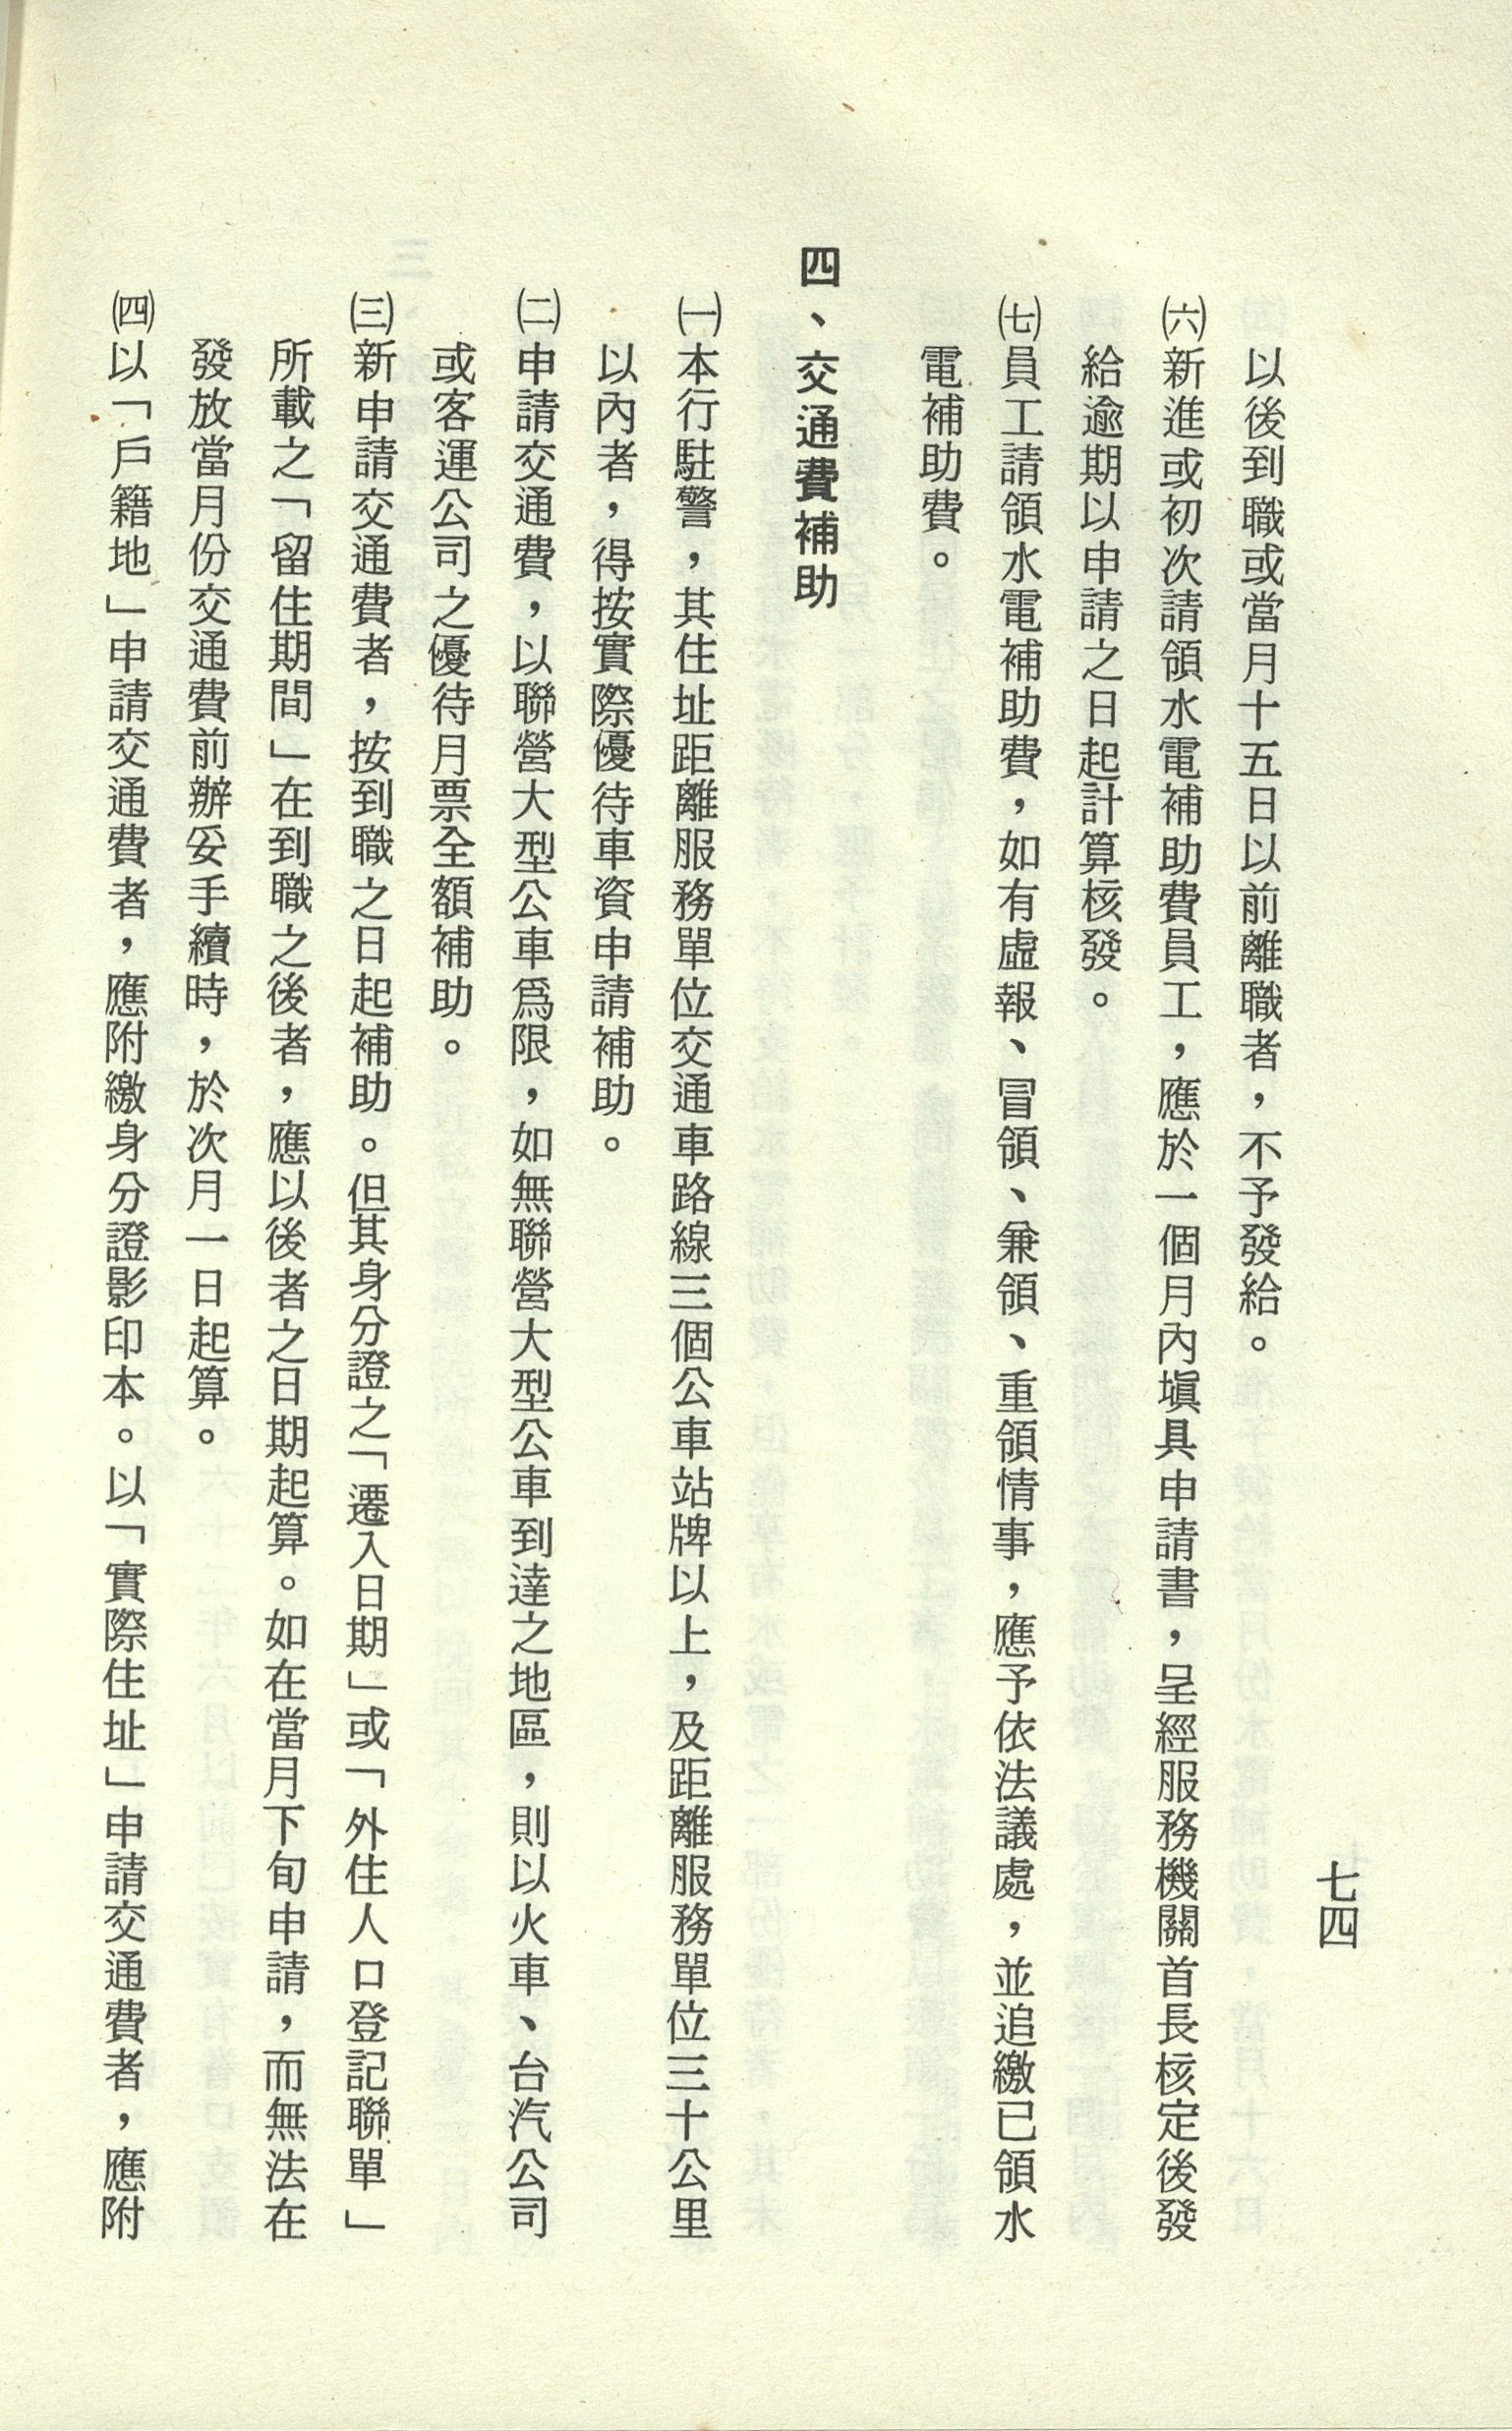 七四
以後到職或當月十五日以前離職者，不予發給。
㈥新進或初次請領水電補助費員工，應於一個月內塡具申請書，呈經服務機關首長核定後發
給逾期以申請之日起計算核發。
㈦員工請領水電補助費，如有虛報、冒領、兼領、重領情事，應予依法議處，並追繳已領水
電補助費。
四、交通費補助
㈠本行駐警，其住址距離服務單位交通車路線三個公車站牌以上，及距離服務單位三十公里
以內者，得按實際優待車資申請補助。
㈡申請交通費，以聯營大型公車爲限，如無聯營大型公車到達之地區，則以火車、台汽公司
或客運公司之優待月票全額補助。
㈢新申請交通費者，按到職之日起補助。但其身分證之「遷入日期」或「外住人口登記聯單」
所載之「留住期間」在到職之後者，應以後者之日期起算。如在當月下旬申請，而無法在
發放當月份交通費前辦妥手續時，於次月一日起算。
㈣以「戶籍地」申請交通費者，應附繳身分證影印本。以「實際住址」申請交通費者，應附